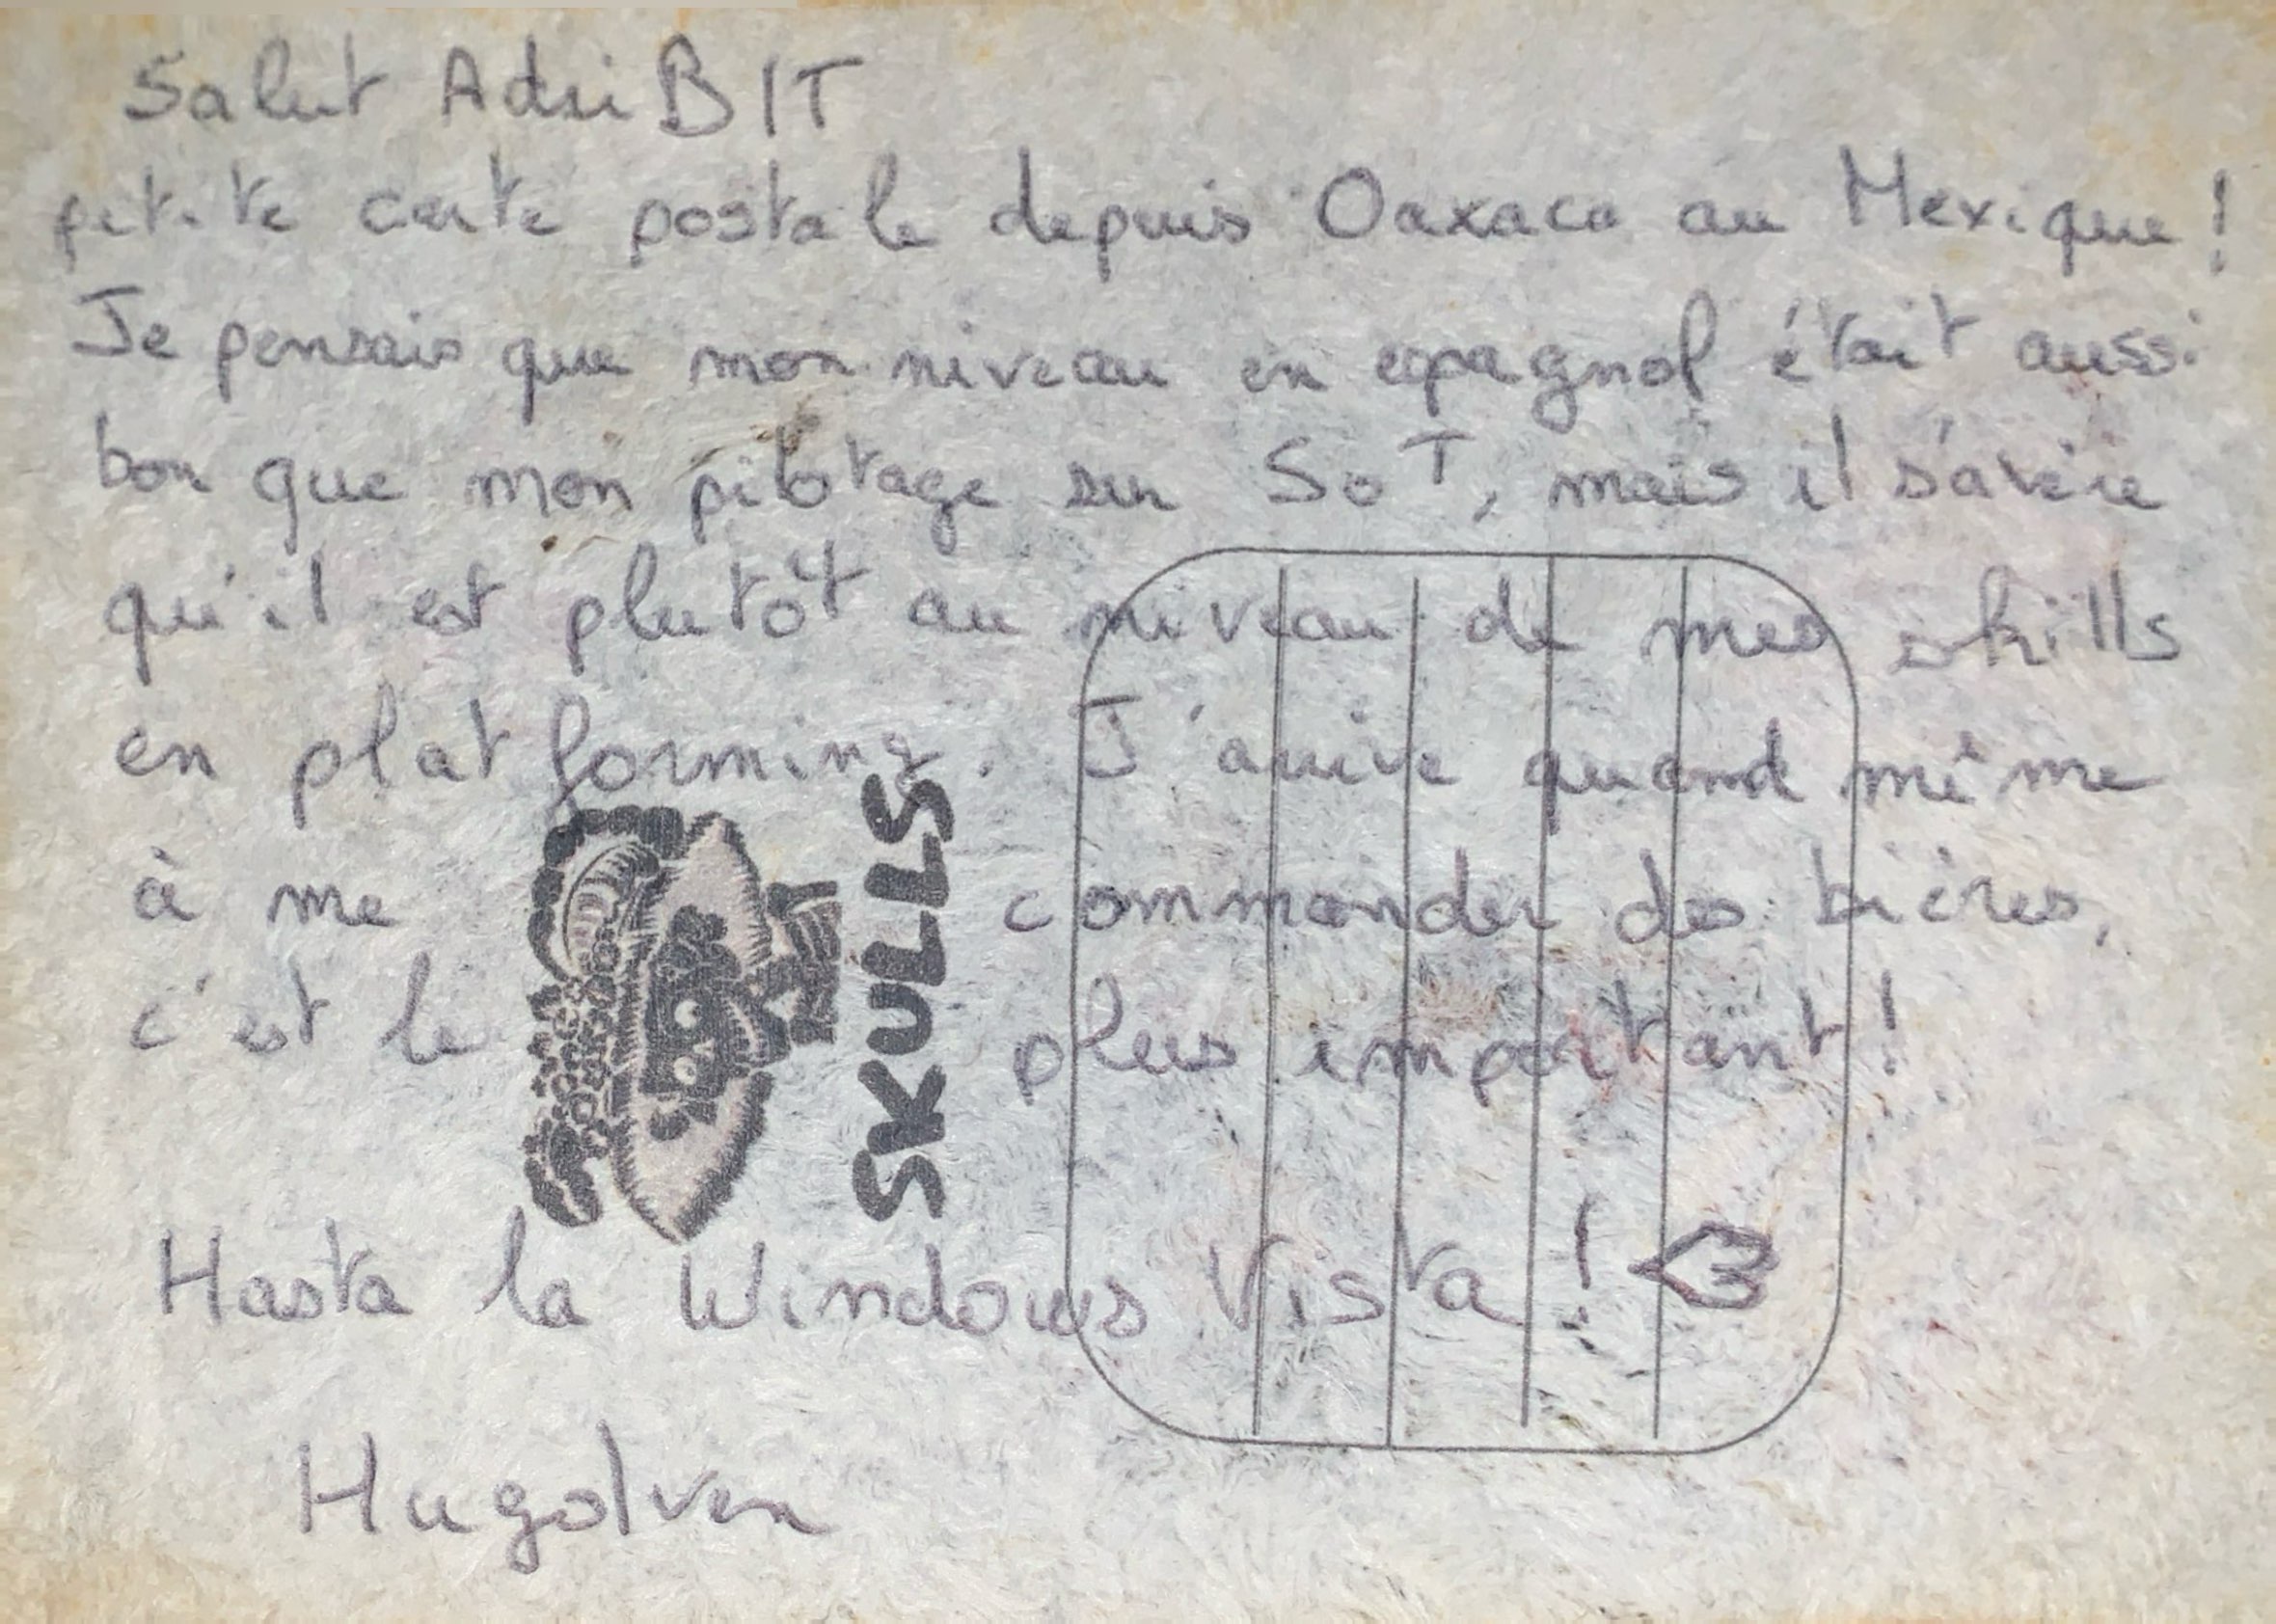 Salut AdriBIT
petite carte postale depuis Oaxaca au Mexique !
Je pensais que mon niveau en espagnol était aussi
bon que mon pilotage sur SoT, mais il s'avère
qu'il est plutôt au niveau de mes skills
en platforming. J'arrive quand même
à me commander des bières,
c'est le plus important !
SKULLS
Hasta la Windows Vista ! <3
Hugolven